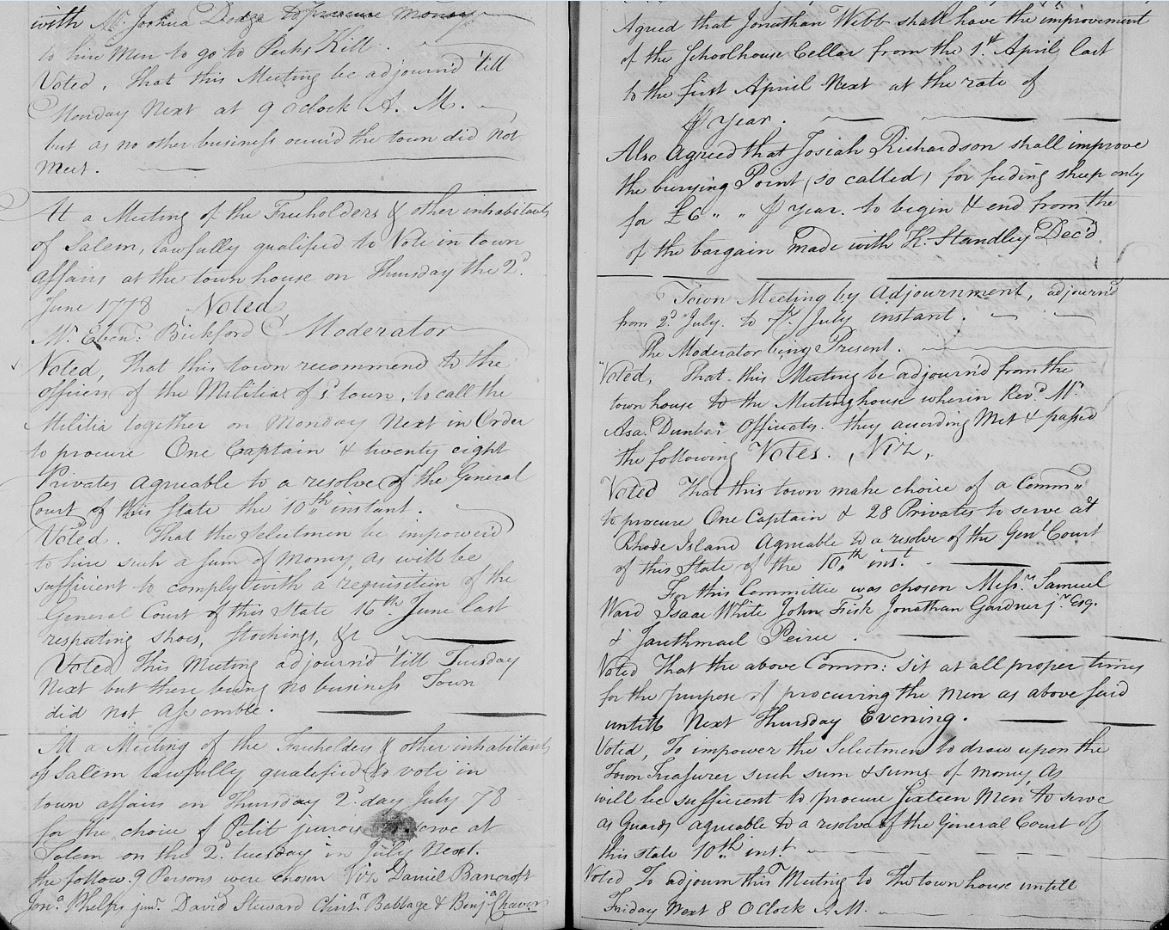 with Mr. Joshua Dodge to procure money
to hire Men to go to Peeks Kill.
Voted, That this Meeting be adjournd 'till
Monday Next at 9 oClock A. M.
but as no other business occurd the town did not
Meet.
At a Meeting of the Freeholders & other inhabitants
of Salem, lawfully qualified to Vote in town
affairs at the town house on Thursday the 2d.
June 1778 Voted
Mr. Eben. Bickford Moderator
Voted, That this town recommend to the
officers of the Militia of sd town, to call the
Militia together on Monday Next in Order
to procure One Captain & twenty eight
Privates agreable to a resolve of the General
Court of this State the 10th instant.
Voted. That the Selectmen be impowerd
to hire such a sum of Money, as will be
sufficient to comply with a requisition of the
General Court of this State 16th June last
respecting Shoes, Stockings, &c
Voted this Meeting adjournd 'till Tuesday
Next but there being no business Town
did not Assemble.
At a Meeting of the Freeholders & other inhabitants
of Salem lawfully qualified to vote in
town affairs on Thursday 2d day July 78
for the choice of Petit jurors to serve at
Salem on the 2d. tuesday in July Next.
the follow.g Persons were chosen Viz Daniel Bancroft
Jona. Phelps junr. David Steward Christ. Babbage & Benja. Chaver
Agreed that Jonathan Webb shall have the improvement
of the Schoolhouse Cellar from the 1st April last
to the first April Next at the rate of
⅌ year.
Also Agreed that Josiah Richardson shall improve
the burying Point (so called) for feeding sheep only
for £6 " " ⅌ year. to begin & end from the
of the bargain made with K. Standley Decd
Town Meeting by Adjournment, adjournd
from 2d July. to 7th July instant.
The Moderator being Present.
Voted, That this Meeting be adjournd from the
town house to the Meetinghouse wherein Revd. Mr.
Asa. Dunbar Officiates. they according Met & passed
the following Votes. Viz,
Voted That this town make choice of a Commee
to procure One Captain & 28 Privates to serve at
Rhode Island Agreable to a resolve of the Genl Court
of this State of the 10th inst.
For this Committee was chosen Messrs. Samuel
Ward Isaac White John Fisk Jonathan Gardner jr. Esq.
& Jauthmael Peirce
Voted That the above Comm: sit at all proper times
for the purpose of procuring the men as above said
untill Next Thursday Evening.
Voted, To impower the Selectmen to draw upon the
Town Treasurer such sum & sums of money, As
will be sufficient to procure Sixteen Men to serve
as Guards agreable to a resolve of the General Court of
this state 10th inst
Voted To adjourn this Meeting to the town house untill
Friday Next 8 OClock A.M.